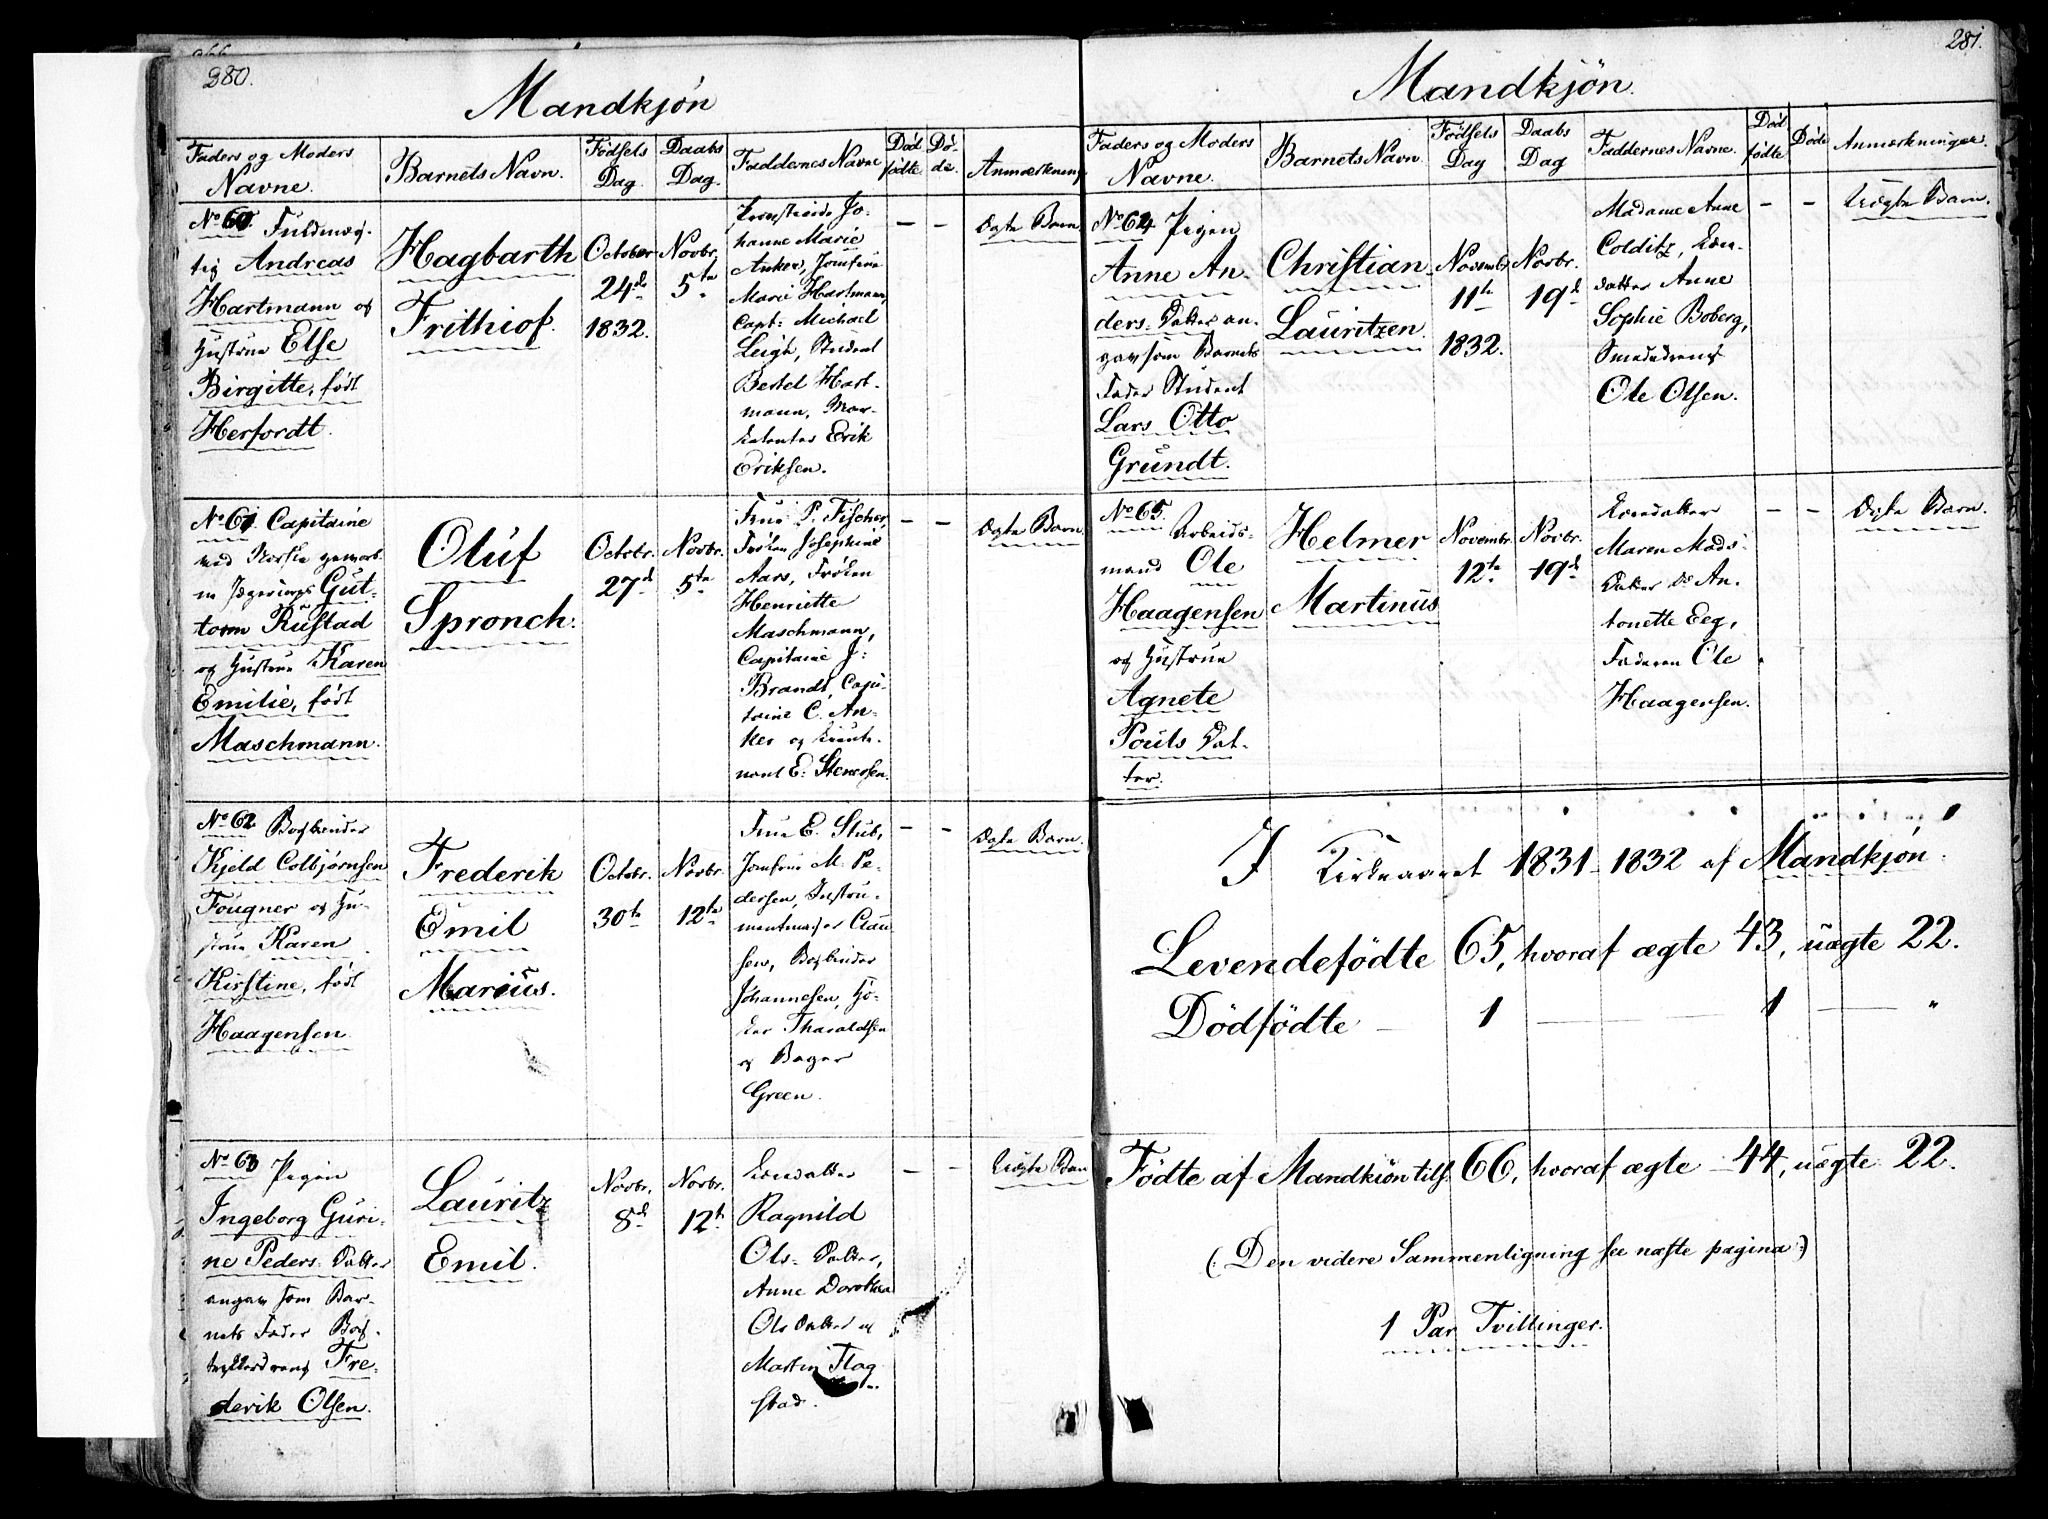 280.
Mandkjøn
Faders og Moders
Navne.
Barnets Navn.
Fødsels
Dag.
Daabs
Dag.
Faddernes Navne
Død
fødte
Dø-
de.
Anmærkning
No 60. Fuldmæg-
tig Andreas
Hartmann og
Hustrue Else
Birgitte, født
Herfordt.
Hagbarth
Frithiof.
October
24de
1832.
Novbr.
5te
Jo-
hanne Marie
Anker, Jomfrue
Marie Hartmann,
Capt: Michael
Leigh, Student
Bertel Hart-
mann, Mar-
Erik
Eriksen.
— —
Ægte Barn
No 61. Capitaine
ved Norske gevorb-
ne Jægercorps Gut-
torm Rustad
og Hustrue Karen
Emilie, født
Maschmann.
Oluf
Spronch.
Octobr.
27d
Novbr.
5te
Frue P. Fischer,
Frøken Josephine
Aars, Frøken
Henriette
Maschmann,
Capitaine J:
Brandt, Capi-
taine C. An-
ker og Lieute-
nant E: Stenersen
— —
Ægte Barn
No 62 Bogbinder
Kjeld Colbjørnsen
Fougner og Hu-
strue Karen
Kirstine, født
Haagensen
Frederik
Emil
Marius.
Octobr.
30te
Novbr.
12te
Frue E. Stub,
Jomfrue M. Pe-
dersen, Instru-
mentmager Clau
sen, Bogbinder
Johannesen, Hö-
ker Tharaldsen
og Bager
Green.
— —
Ægte Barn.
No 63 Pigen
Ingeborg Guri-
ne Peders-Datter
angav som Bar-
nets Fader Bog-
trykkerdreng Fre-
derik Olsen.
Lauritz
Emil.
Novbr.
8d
Novbr.
12t
Konedatter
Ragnild
Ols-Datter,
Anne Dorothea
Ols Datter og
Martin Flag-
stad.
— —
Uægte Barn
281.
Mandkjön.
Faders og Moders
Navne.
Barnets Navn.
Födsels
Dag
Daabs
Dag
Faddernes Navne.
Død
födte
Døde
Anmærkninger.
No 64 Pigen
Anne An-
ders-Datter an-
gav som Barnets
Fader Student
Lars Otto
Grundt.
Christian
Lauritzen.
Novembr
11te
1832.
Novbr.
19d
Madame Anne
Colditz,
datter Anne
Sophie Boberg,
Smededreng
Ole Olsen.
— —
Uægte Barn.
No 65. Arbeids-
mand Ole
Haagensen
og Hustrue
Agnete
Pouls Dat-
ter.
Helmer
Martinus
Novembr.
12te
Novbr.
19d
Konedatter
Maren Mads-
Datter Do An-
tonette Eeg,
Faderen Ole
Haagensen.
— —
Ægte Barn.
I Kirkeaaret 1831-1832 af Mandkjøn.
Levendefödte 65, hvoraf ægte 43, uægte 22.
Dödfödte — 1 — 1 — "
Födte af Mandkiön tils. 66, hvoraf ægte 44, uægte 22.
(: Den videre Sammenligning see næste pagina :)
1 Par Tvillinger.